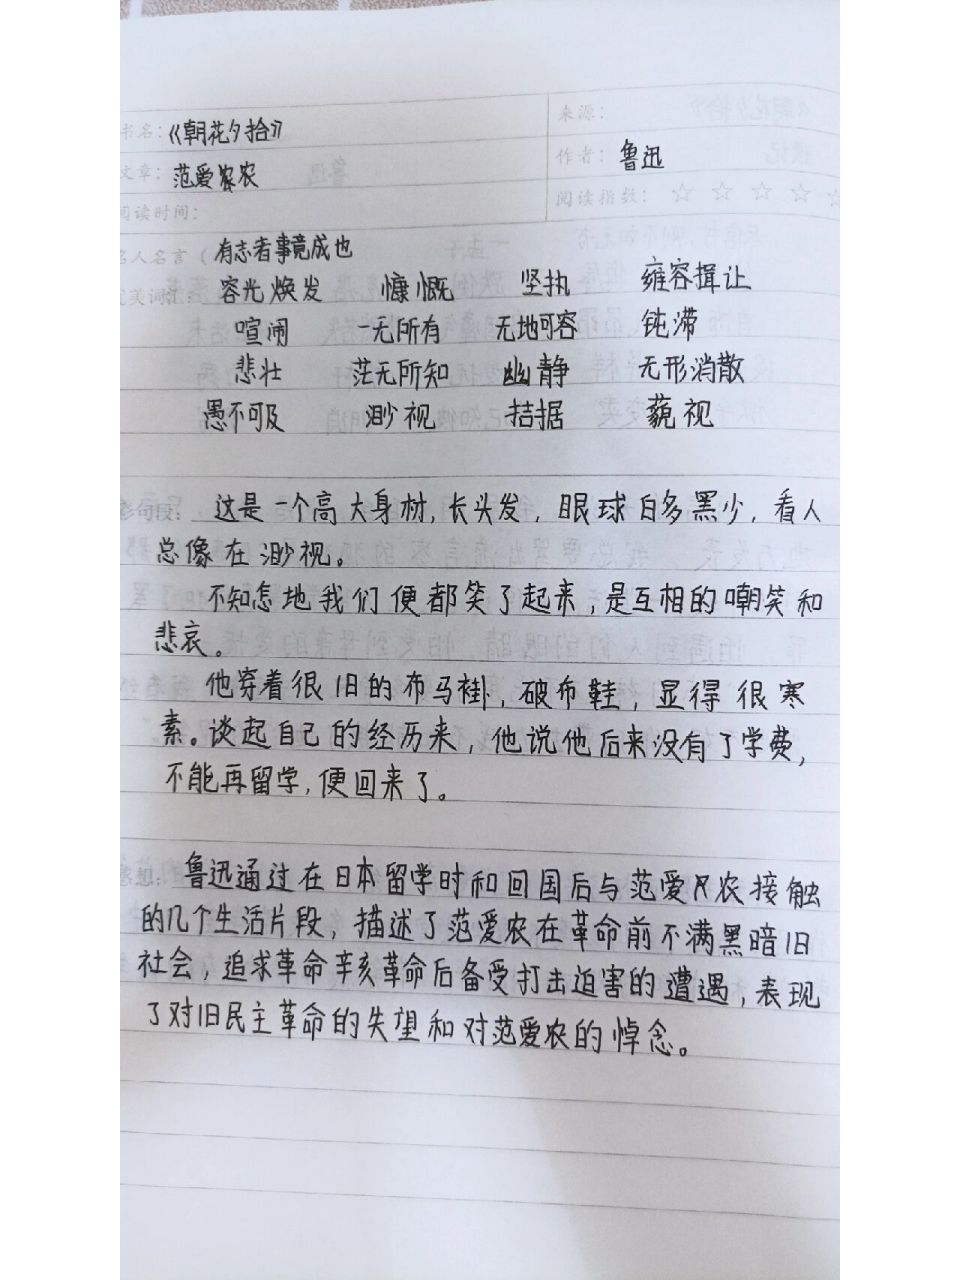 书名：《朝花夕拾》
来源：
文章：范爱农
作者：鲁迅
阅读时间：
阅读指数：☆ ☆ ☆ ☆ ☆
名人名言（ 有志者事竟成也
优美词汇： 容光焕发 慷慨 坚执 雍容揖让
喧闹 一无所有 无地可容 钝滞
悲壮 茫无所知 幽静 无形消散
愚不可及 渺视 拮据 藐视
句段： 这是一个高大身材，长头发，眼球白多黑少，看人
总像在渺视。
不知怎地我们便都笑了起来，是互相的嘲笑和
悲哀。
他穿着很旧的布马褂，破布鞋，显得很寒
素。谈起自己的经历来，他说他后来没有了学费，
不能再留学，便回来了。
感想： 鲁迅通过在日本留学时和回国后与范爱农接触
的几个生活片段，描述了范爱农在革命前不满黑暗旧
社会，追求革命辛亥革命后备受打击迫害的遭遇，表现
了对旧民主革命的失望和对范爱农的悼念。